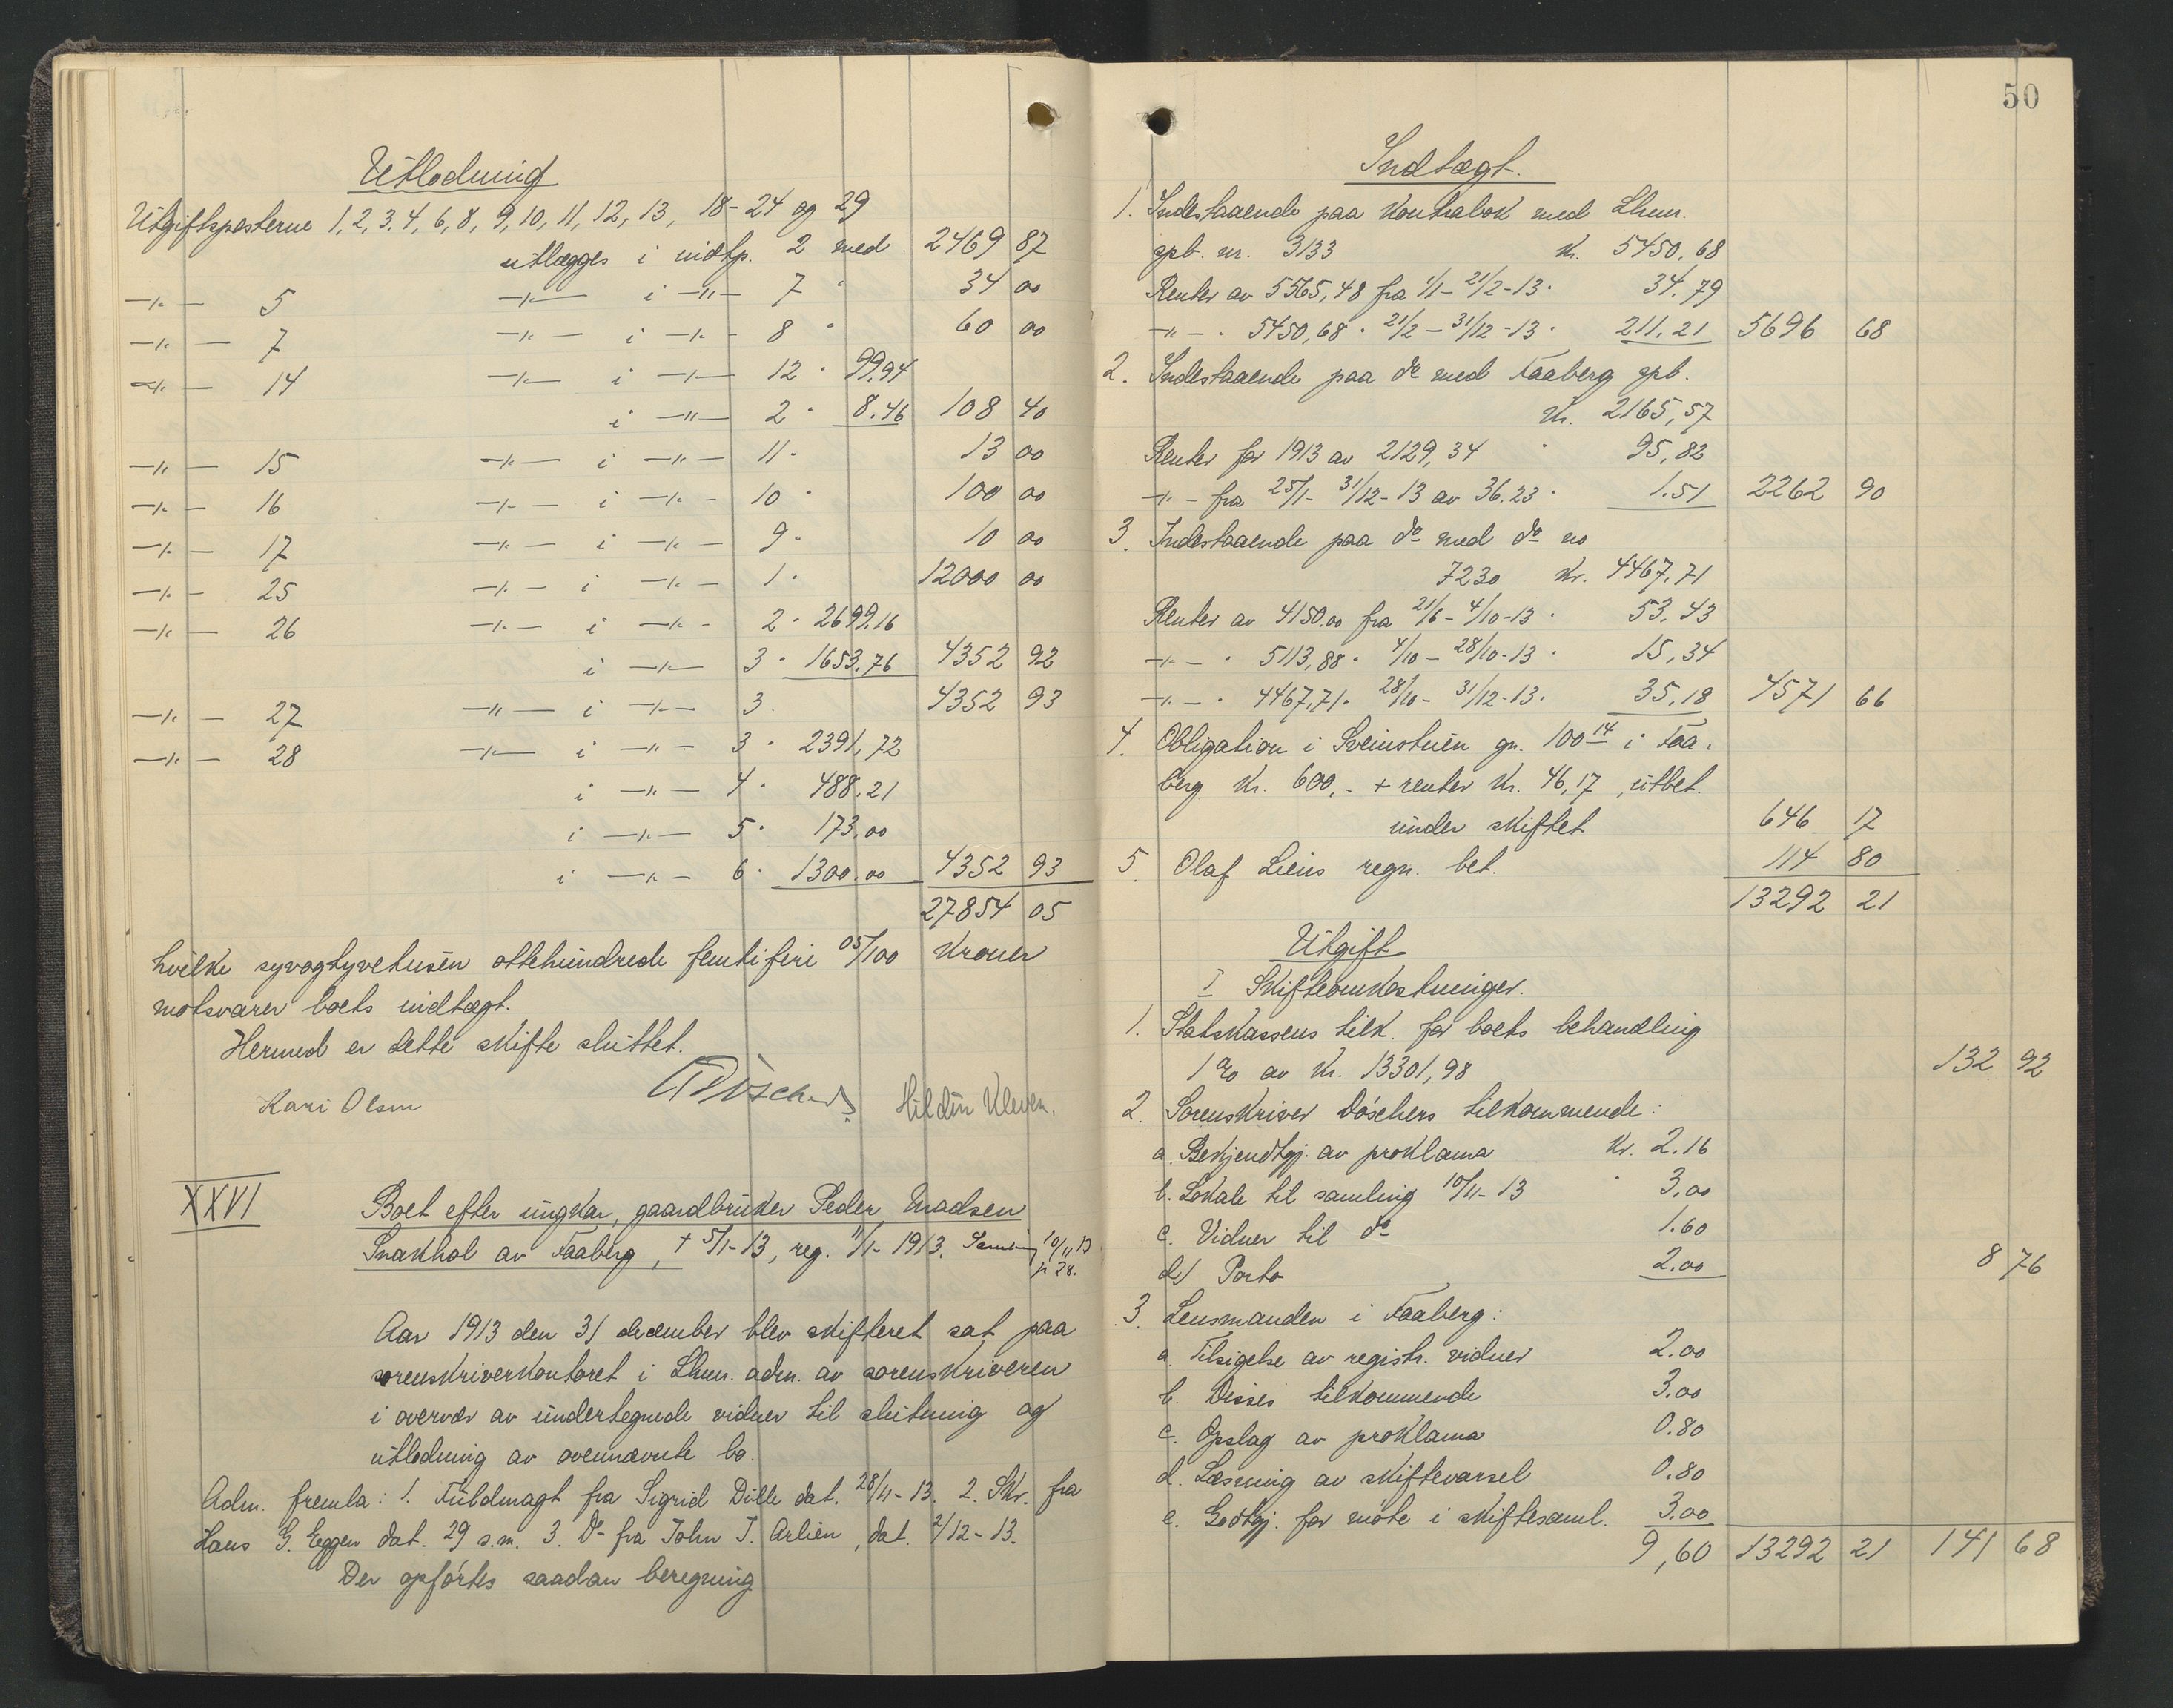 Utlodning
Utgiftsposterne 1, 2, 3, 4, 6, 8, 9, 10, 11, 12, 13, 18-24 og 29
utlægges i indtp. 2 med 2469 87
-"- 5 -"- i -"- 7 " 34 00
-"- 7 -"- i -"- 8 " 60 00
-"- 14 -"- i -"- 12 " 99.94
i -"- 2 " 8.46 108 40
-"- 15 -"- i -"- 11 " 13 00
-"- 16 -"- i -"- 10 " 100 00
-"- 17 -"- i -"- 9 " 10 00
-"- 25 -"- i -"- 1 " 12000 00
-"- 26 -"- i -"- 2 " 2699.16
i -"- 3 " 1653.76 4352 92
-"- 27 -"- i -"- 3 4352 93
-"- 28 -"- i -"- 3 " 2391,72
i -"- 4 " 488.21
i -"- 5 " 173.00
i -"- 6 " 1300.00 4352 93
27854 05
hvilke syvogtyvetusen ottehundrede femtifire 05/100 Kroner
motsvarer boets indtægt.
Hermed er dette skifte sluttet.
Kari Olsen
Hildur Kleven.
XXVI
Boet efter ungkar, gaardbruker Peder Madsen
Snakhol av Faaberg, † 5/1-13, reg. 11/1-1913. Samling 10/11 13
p 28.
Aar 1913 den 31 december blev skifteret sat paa
sorenskriverkontoret i Lhmr. adm. av sorenskriveren
i overvær av undertegnede vidner til slutning og
utlodning av ovennævnte bo.
Adm. fremla: 1. Fuldmagt fra Sigrid Dille dat. 28/11-13. 2. Skr. fra
Hans G. Eggen dat. 29 s.m. 3. Do fra John J. Arlien, dat. 2/12-13.
Der opførtes saadan beregning
50
Indtægt.
1. Indestaaende paa Kontrabok med Lhmr.
spb. nr. 3133 Kr. 5450,68
Renter av 5565,48 fra 1/1-21/2-13 " 34.79
-"- " 5450,68 " 21/2-31/12-13 " 211.21 5696 68
2. Indestaaende paa do med Faaberg spb.
Kr. 2165,57
Renter for 1913 av 2129,34 " 95,82
-"- fra 25/1-31/12-13 av 36.23 " 1.51 2262 90
3. Indestaaende paa do med do no
7230 Kr. 4467,71
Renter av 4150.00 fra 21/6-4/10-13 " 53.43
-"- " 5113,88 " 4/10-28/10-13 " 15,34
-"- " 4467,71 " 28/10-31/12-13 " 35.18 4571 66
4. Obligation i Sveinstuen gn. 100 14 i Faa-
berg Kr. 600,- + renter Kr. 46,17, utbet.
under skiftet 646 17
5. Olaf Liens regn. bet. 114 80
13292 21
Utgift
I Skifteomkostninger.
1. Statskassens tilk. for boets behandling
1 % av Kr. 13301,98 132 92
2. Sorenskriver Döschers tilkommende:
a. Bekjendtgj. av proklama Kr. 2.16
b. Lokale til samling 10/11-13 " 3,00
c. Vidner til do 1.60
d) Porto 2.00 8 76
3. Lensmanden i Faaberg:
a. Tilsigelse av registr. vidner 2.00
b. Disses tilkommende 3.00
c. Opslag av proklama 0.80
d. Læsning av skiftevarsel 0.80
e. Godtgj. for møte i skiftesaml. 3.00
9,60 13292 21 141 68